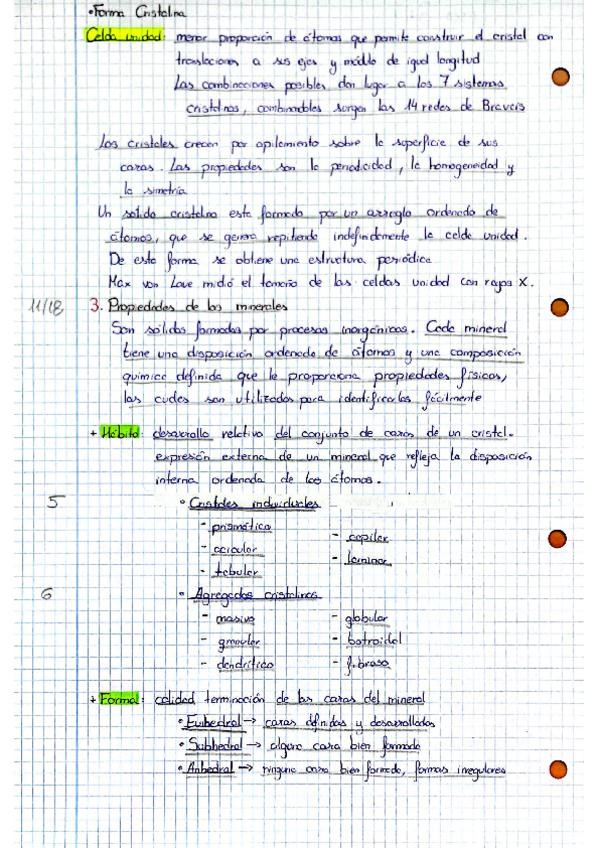 • Forma Cristalina
Celda unidad: menor proporción de átomos que permite construir el cristal con
translaciones a sus ejes y módulo de igual longitud
Las combinaciones posibles dan lugar a los 7 sistemas
cristalinos, combinables surgen las 14 redes de Bravais
Los cristales crecen por apilamiento sobre la superficie de sus
caras. Las propiedades son la periodicidad, la homogeneidad y
la simetría
Un sólido cristalino esta formado por un arreglo ordenado de
átomos, que se genera repitiendo indefinidamente la celda unidad.
De esta forma se obtiene una estructura periódica
Max von Laue midió el tamaño de las celdas unidad con rayos X.
11/18 3. Propiedades de los minerales
Son sólidos formados por procesos inorgánicos. Cada mineral
tiene una disposición ordenada de átomos y una composición
química definida que le proporciona propiedades físicas,
las cuales son utilizadas para identificarlos fácilmente
+ Hábito: desarrollo relativo del conjunto de caras de un cristal.
expresión externa de un mineral que refleja la disposición
interna ordenada de los átomos.
5 • Cristales individuales
- prismático
- capilar
- acicular
- laminar
- tabular
6 • Agregados cristalinos
- masivo - globular
- granular - botroidal
- dendrítico - fibroso
+ Forma: calidad terminación de las caras del mineral
• Euhedral → caras definidas y desarrolladas
• Subhedral → alguna cara bien formada
• Anhedral → ninguna cara bien formada, formas irregulares